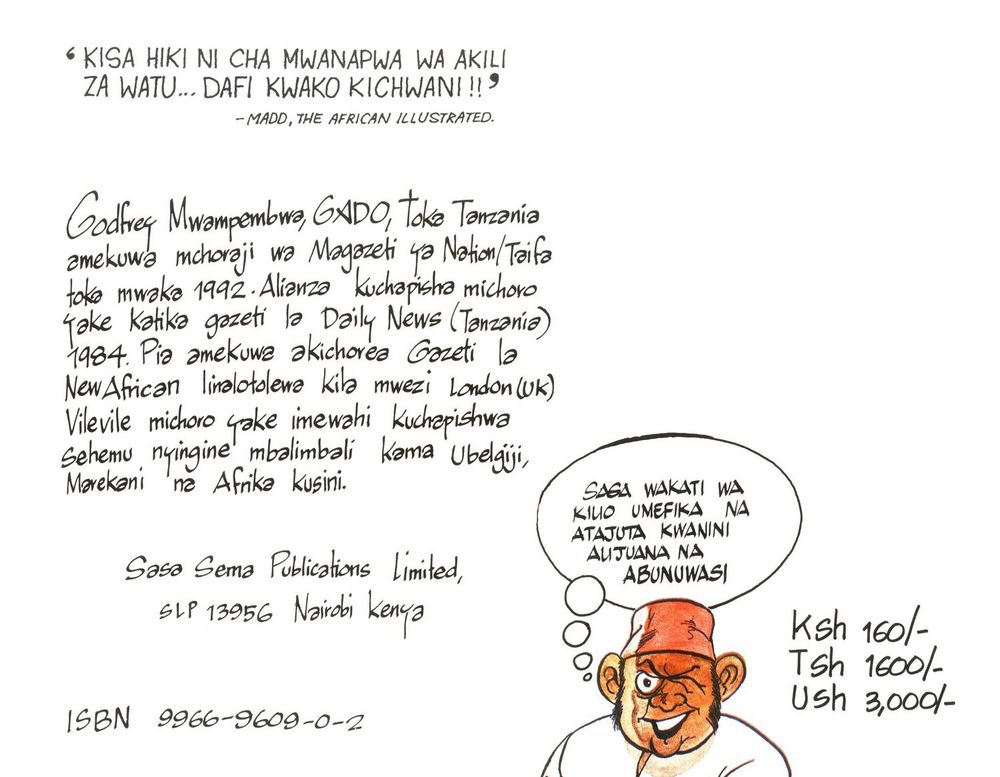 ‘KISA HIKI NI CHA MWANAPWA WA AKILI
ZA WATU... DAFI KWAKO KICHWANI !!’
– MADD, THE AFRICAN ILLUSTRATED.
Godfrey Mwampembwa, GADO, toka Tanzania
amekuwa mchoraji wa Magazeti ya Nation/Taifa
toka mwaka 1992. Alianza kuchapisha michoro
yake katika gazeti la Daily News (Tanzania)
1984. Pia amekuwa akichorea Gazeti la
New African linalotolewa kila mwezi London (UK)
Vilevile michoro yake imewahi kuchapishwa
sehemu nyingine mbalimbali kama Ubelgiji,
Marekani na Afrika kusini.
Sasa Sema Publications Limited,
SLP 13956 Nairobi Kenya
ISBN 9966-9609-0-2
SASA WAKATI WA
KILIO UMEFIKA NA
ATAJUTA KWANINI
ALIJUANA NA
ABUNUWASI
Ksh 160/-
Tsh 1600/-
Ush 3,000/-